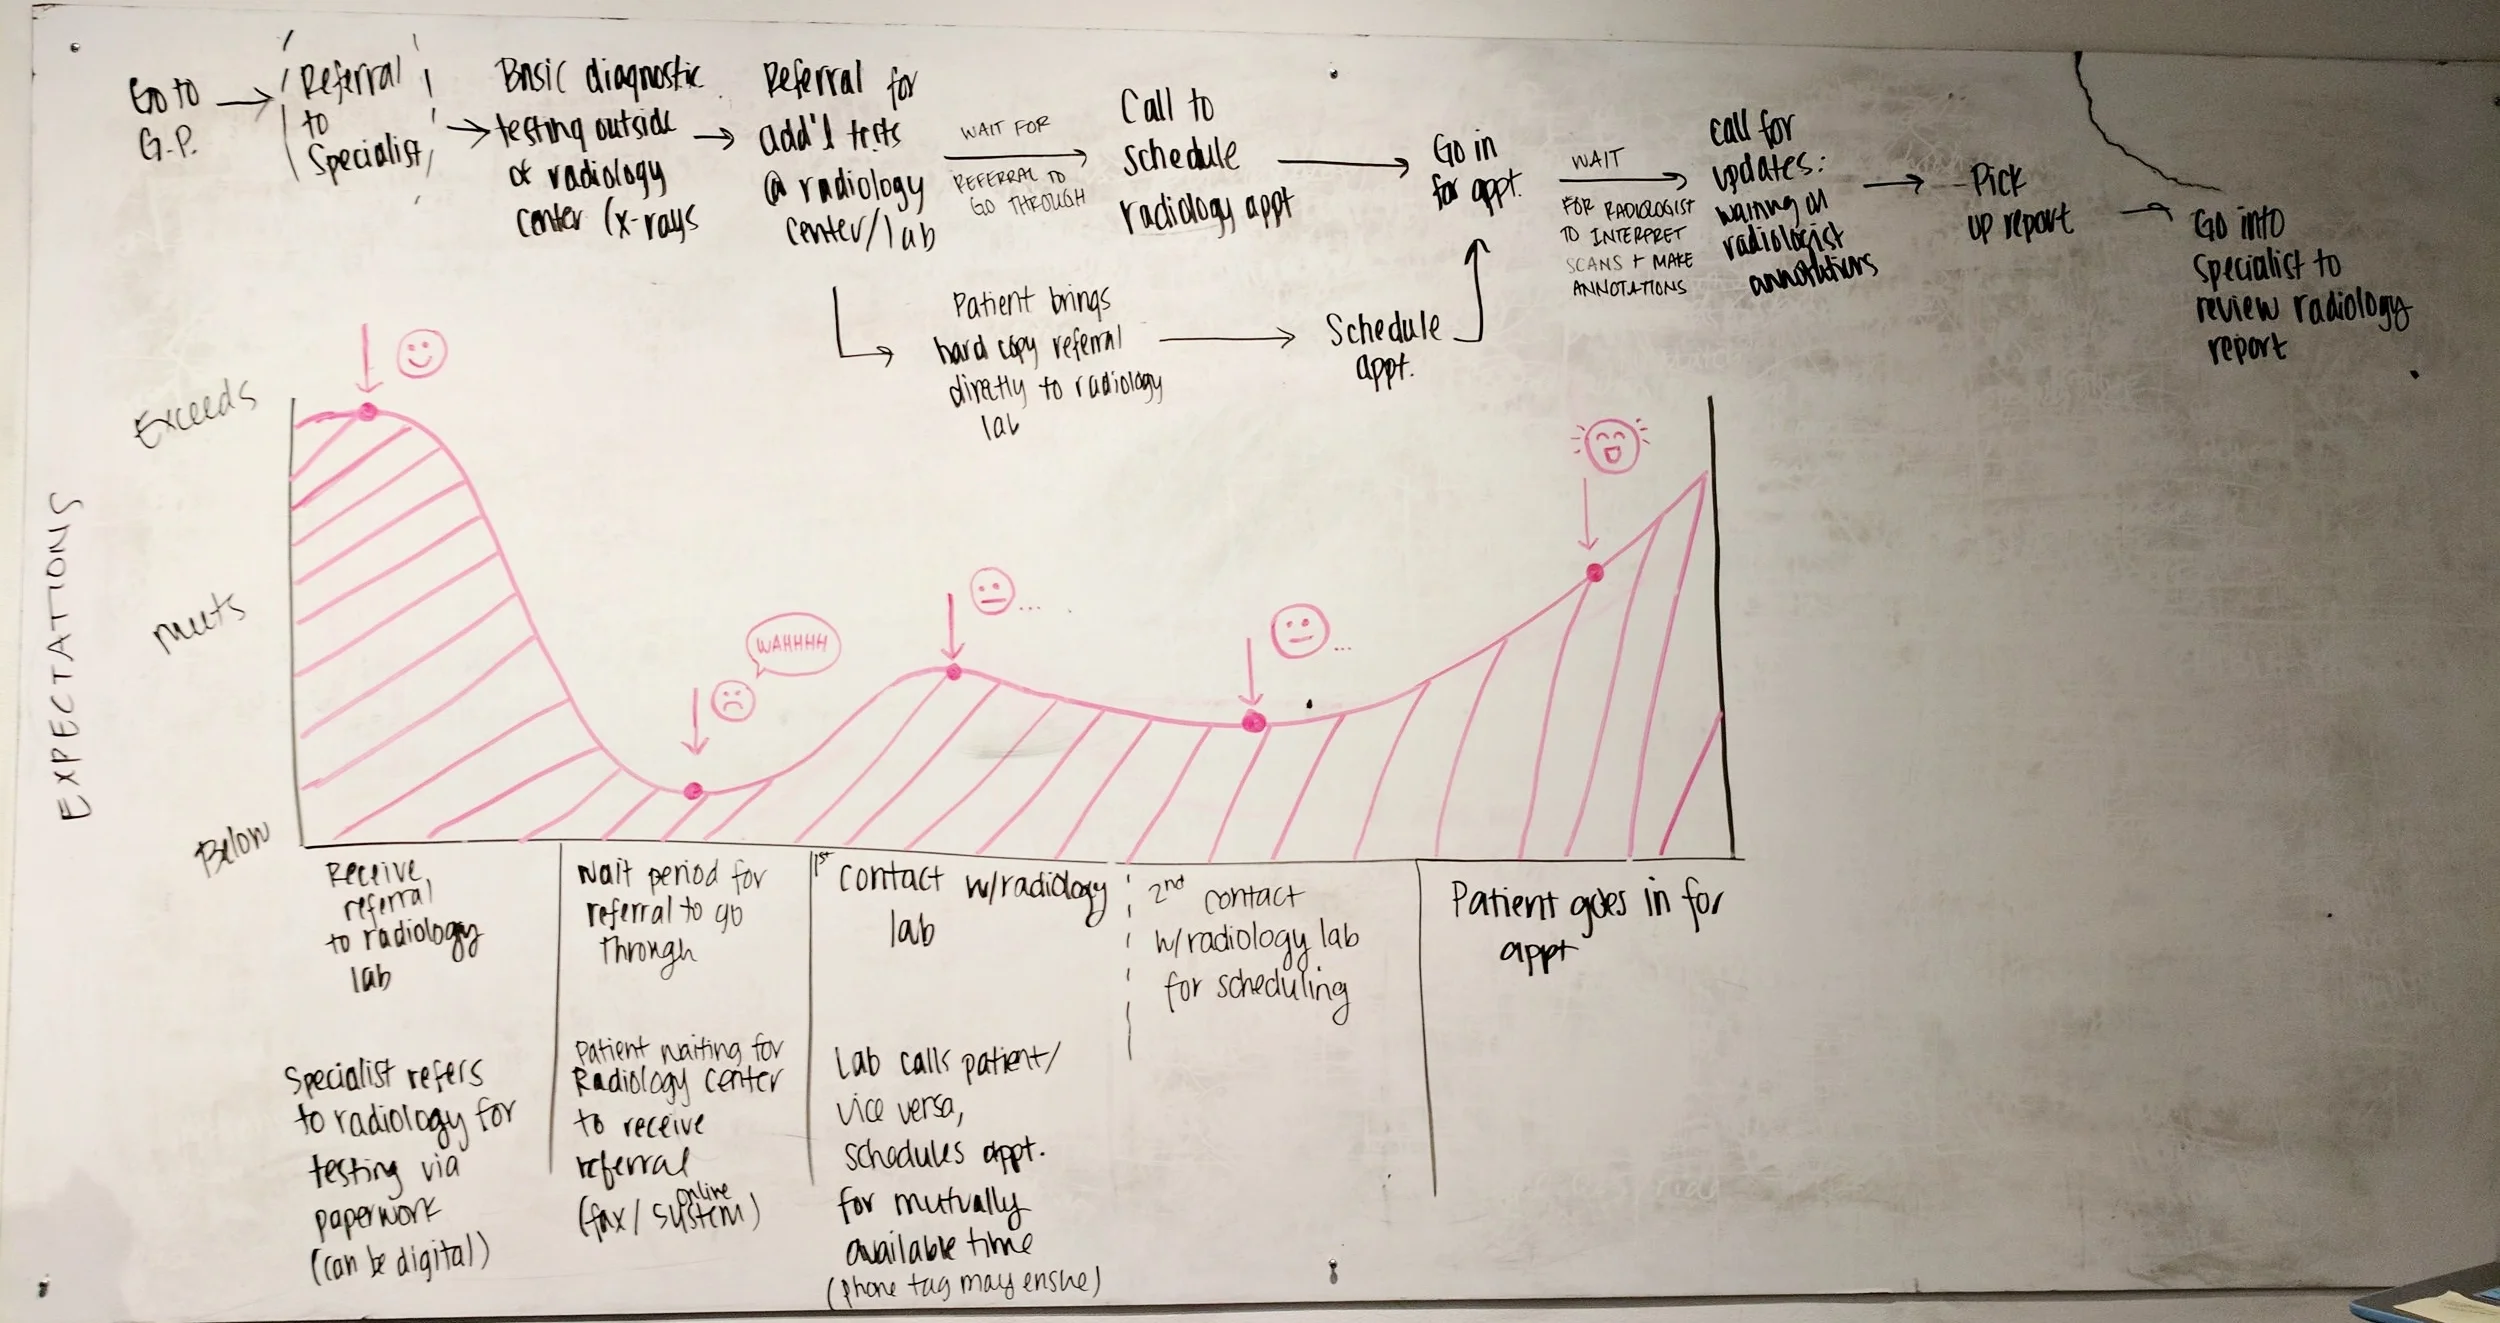 Go to
G.P.
Referral
to
Specialist
Basic diagnostic
testing outside
of radiology
center (x-rays
Referral for
add'l tests
@ radiology
center/lab
WAIT FOR
REFERRAL TO
GO THROUGH
Call to
schedule
radiology appt
Go in
for appt.
WAIT
FOR RADIOLOGIST
TO INTERPRET
SCANS + MAKE
ANNOTATIONS
call for
updates:
waiting on
radiologist
annotations
Pick
up report
Go into
specialist to
review radiology
report
Patient brings
hard copy referral
directly to radiology
lab
Schedule
appt.
EXPECTATIONS
Exceeds
Meets
Below
WAHHHH
...
...
Receive
referral
to radiology
lab
Wait period for
referral to go
through
1st contact w/radiology
lab
2nd contact
w/radiology lab
for scheduling
Patient goes in for
appt
Specialist refers
to radiology for
testing via
paperwork
(can be digital)
Patient waiting for
Radiology center
to receive
referral
(fax/online system)
Lab calls patient/
vice versa,
schedules appt.
for mutually
available time
(phone tag may ensue)